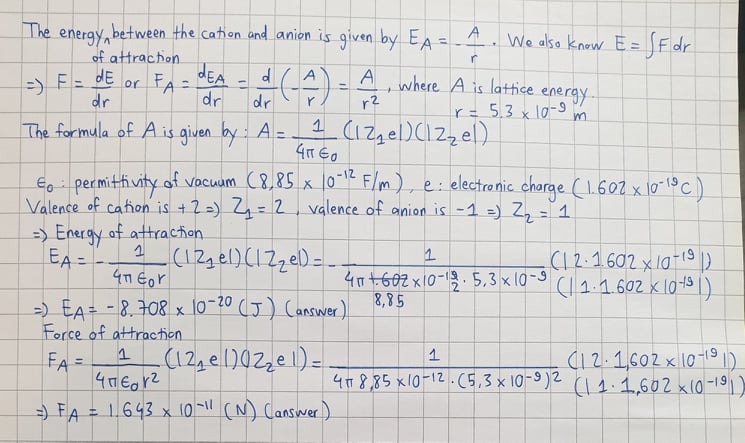 The energy between the cation and anion is given by E_A = -A/r. We also know E = ∫F dr
of attraction
=> F = dE/dr or F_A = dE_A/dr = d/dr (-A/r) = A/r², where A is lattice energy.
r = 5.3 x 10^-9 m
The formula of A is given by: A = 1/(4π ε₀) (|Z₁e|)(|Z₂e|)
ε₀: permittivity of vacuum (8,85 x 10^-12 F/m), e: electronic charge (1.602 x 10^-19 C)
Valence of cation is +2 => Z₁ = 2, valence of anion is -1 => Z₂ = 1
=> Energy of attraction
E_A = - 1/(4π ε₀ r) (|Z₁e|)(|Z₂e|) = - 1/(4π 8,85 x 10^-12 · 5,3 x 10^-9) (|2 · 1.602 x 10^-19|) (|1 · 1.602 x 10^-19|)
=> E_A = -8.708 x 10^-20 (J) (answer)
Force of attraction
F_A = 1/(4π ε₀ r²) (|Z₁e|)(|Z₂e|) = 1/(4π 8,85 x 10^-12 · (5,3 x 10^-9)²) (|2 · 1,602 x 10^-19|) (|1 · 1,602 x 10^-19|)
=> F_A = 1.643 x 10^-11 (N) (answer)